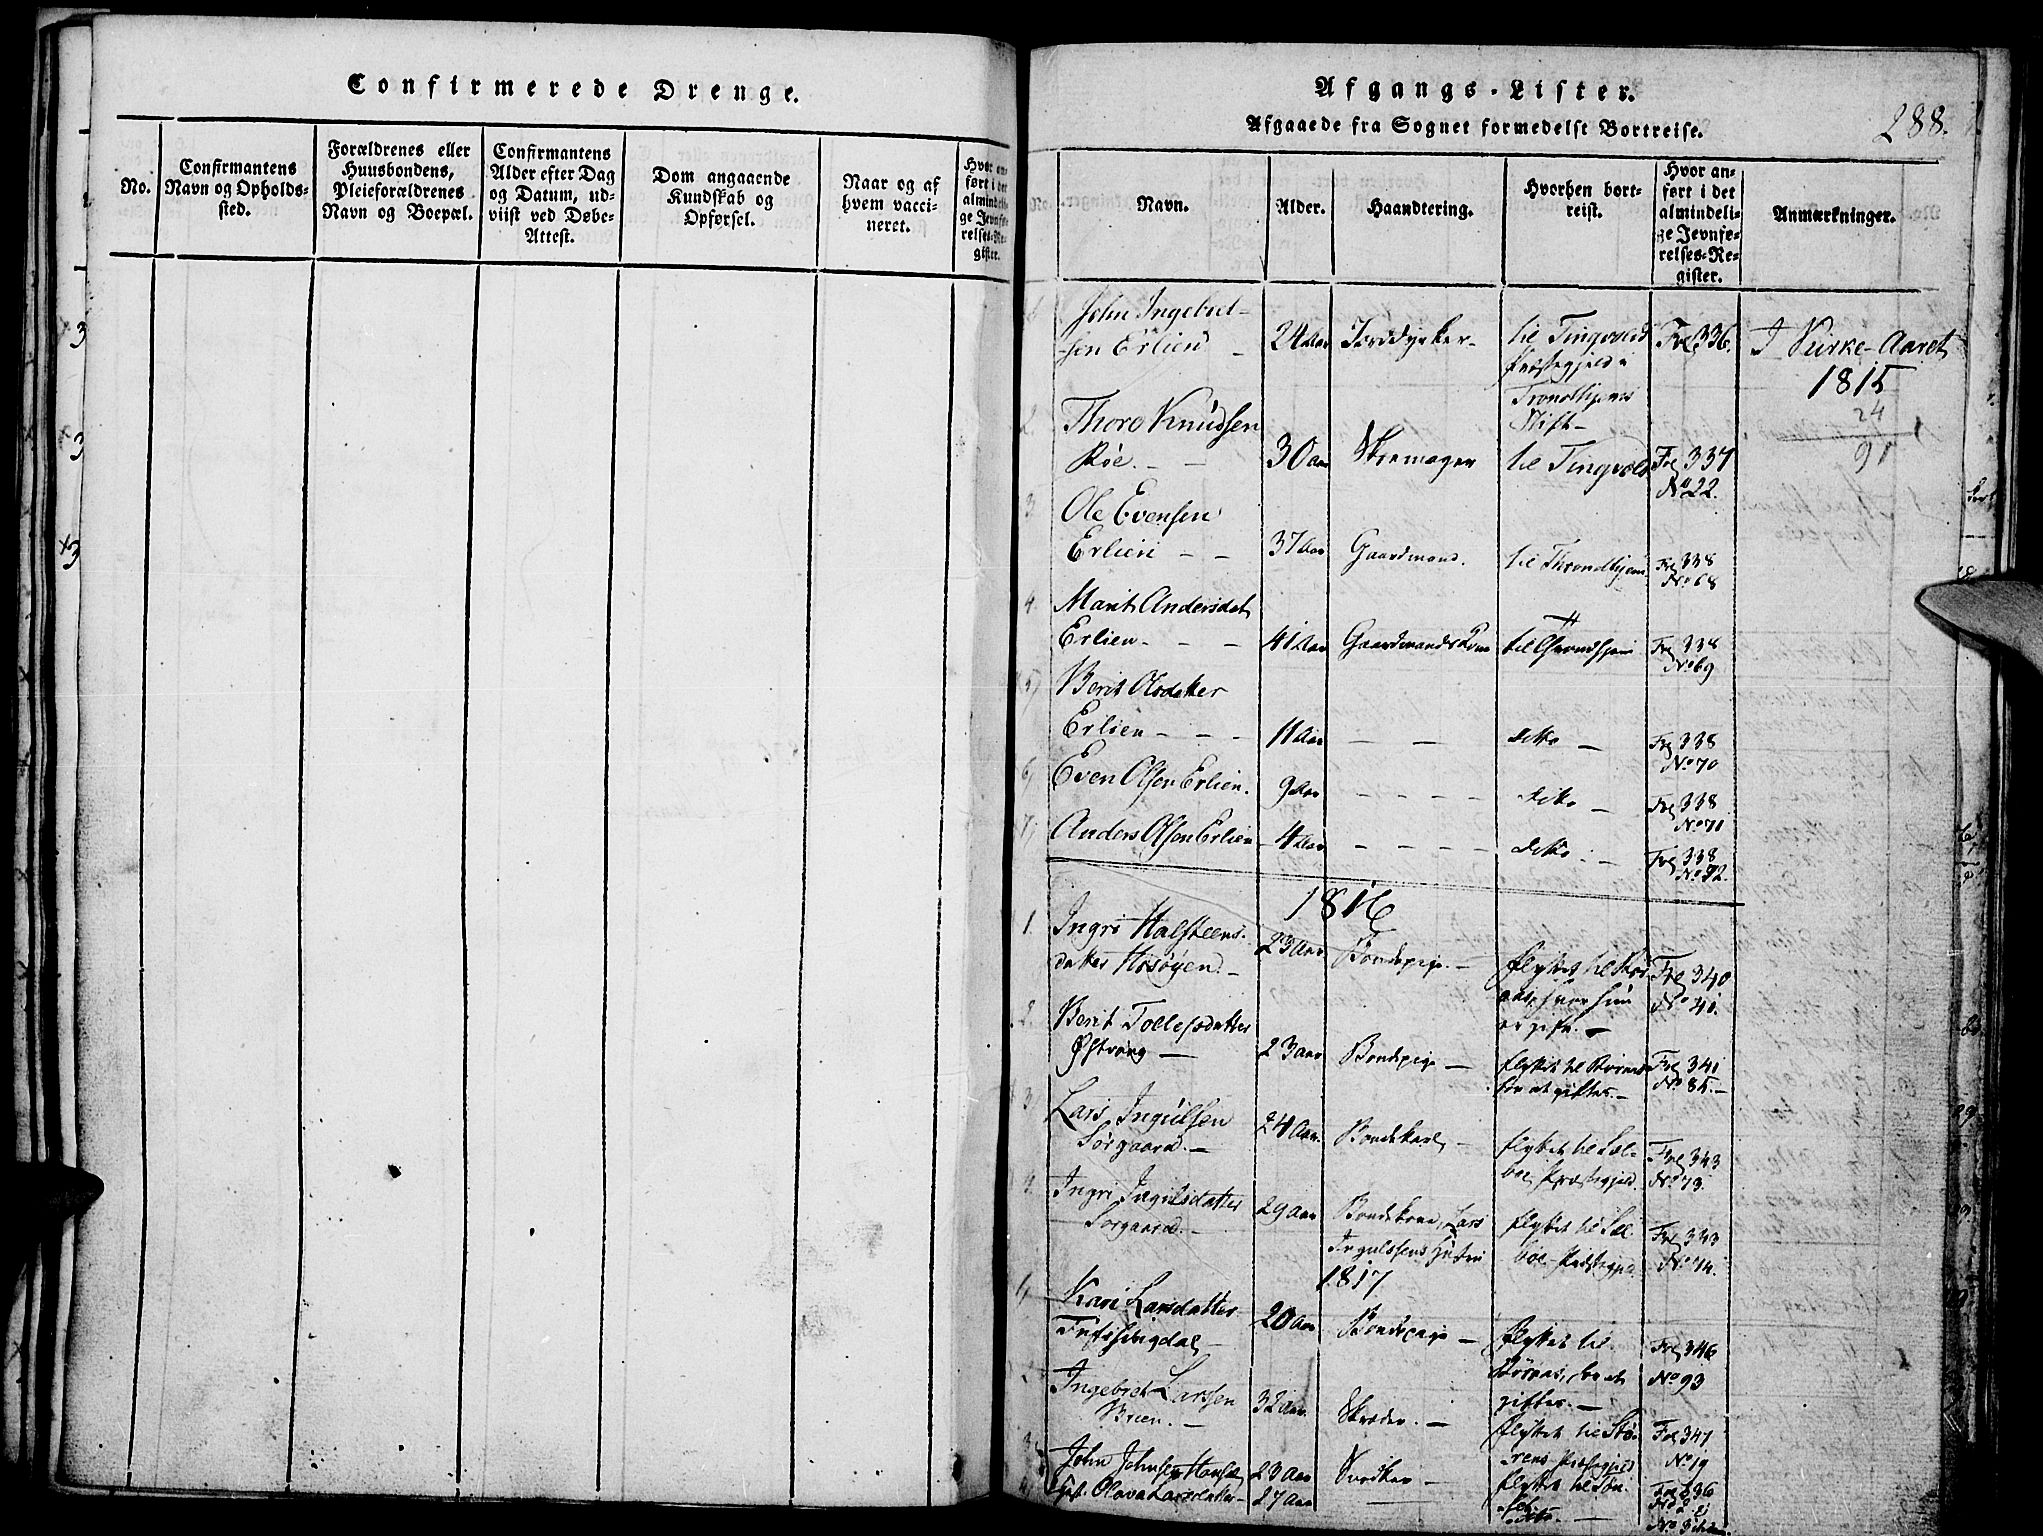 Confirmerede Drenge.
No.
Confirmantens
Navn og Opholds-
sted.
Forældrenes eller
Huusbondens,
Pleieforældrenes
Navn og Boepæl.
Confirmantens
Alder efter Dag
og Datum, ud-
viist ved Døbe-
Attest.
Dom angaaende
Kundskab og
Opførsel.
Naar og af
hvem vacci-
neret.
Hvor an-
ført i det
almindeli-
ge Jevnfø-
relses-Re-
gister.
Afgangs-Lister.
288.
Afgaaede fra Sognet formedelst Bortreise.
Navn.
Alder.
Haandtering.
Hvorhen bort-
reist.
Hvor an-
ført i det
almindeli-
ge Jevnfø-
relses-Re-
gister.
Anmærkninger.
John Ingebret-
sen Erlien
24 Aar
Jorddyrker
til Tingvold
Præstegjeld i
Trondhjems
Stift
Fol 336.
I Kirke-Aaret
1815
24
91
2.
Thore Knudsen
Röe.
30 Aar
Skomager
til Tingvold
Fol 337
No 22.
3
Ole Evensen
Erlien
37 Aar
Gaardmand.
til Throndhjem
Fol 338
No 68
4.
Marit Andersdat
Erlien
41 Aar
Gaardmandskone
til Throndhjem
Fol 338
No 69
5
Berit Olsdatter
Erlien
11 Aar
ditto
Fol 338
No 70
6
Even Olsen Erlien.
9 Aar
ditto
Fol 338
No 71
7
Anders Olsen Erlien
4 Aar
ditto
Fol 338
No 72.
1816
1.
Ingri Halsteens-
datter
23 Aar
Bondepige.
flyttet til
hvor hun
er gift.
Fol 340
No 41.
2.
Berit Tollefsdatter
Østvang
23 Aar
Bondepige
flyttet til
for at giftes.
Fol 341
No 85.
3
Lars Ingulsen
Sørgaard.
24 Aar.
Bondekarl
flyttet til Sel-
boe Præstegjeld.
Fol 343
No 73.
4.
Ingri Ingulsdatter
Sørgaard.
29 Aar
Bondekone, Lars
Ingulssens Hustru
flyttet til Sel-
boe Præstegjeld
Fol 343
No 74.
1817
1,
Kari Larsdatter
20 Aar
Bondepige
flyttet til
Størens, for at
giftes.
Fol 346
No 93
Ingebret Larssen
Brien.
32 Aar.
Skræder.
flyttet til Stø-
rens Præstegjeld
Fol 347
No 19
3
John Johnsen
23 Aar
Snedker
flyttet til
Olava Larsdatter
27 Aar